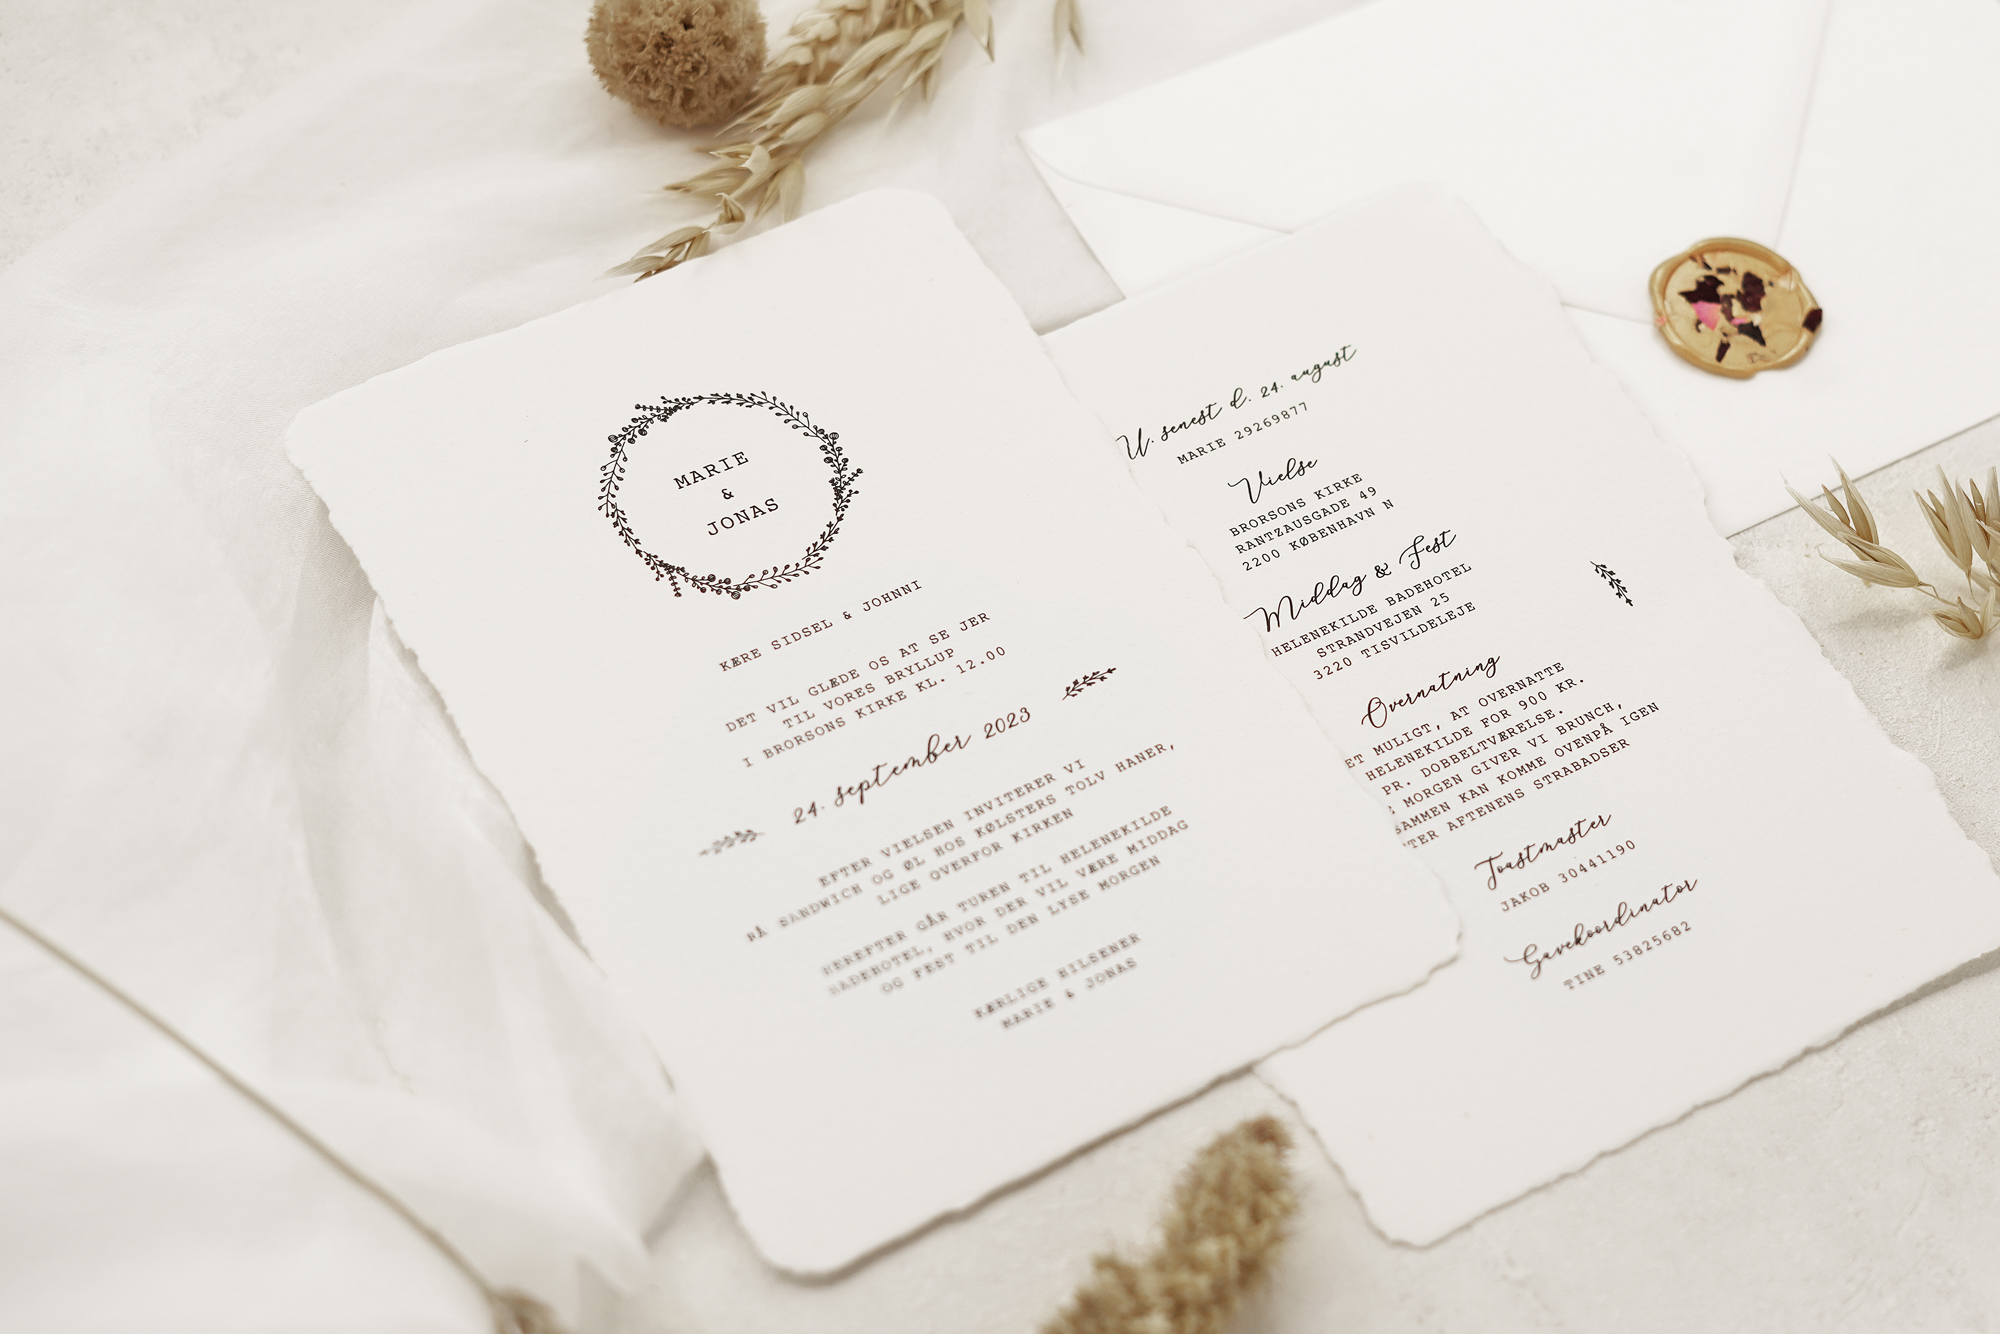 MARIE
&
JONAS
KÆRE SIDSEL & JOHNNI
DET VIL GLÆDE OS AT SE JER
TIL VORES BRYLLUP
I BRORSONS KIRKE KL. 12.00
24. september 2023
EFTER VIELSEN INVITERER VI
PÅ SANDWICH OG ØL HOS KØLSTERS TOLV HANER,
LIGE OVERFOR KIRKEN
HEREFTER GÅR TUREN TIL HELENEKILDE
BADEHOTEL, HVOR DER VIL VÆRE MIDDAG
OG FEST TIL DEN LYSE MORGEN
KÆRLIGE HILSENER
MARIE & JONAS
U. senest d. 24. august
MARIE 29269877
Vielse
BRORSONS KIRKE
RANTZAUSGADE 49
2200 KØBENHAVN N
Middag & Fest
HELENEKILDE BADEHOTEL
STRANDVEJEN 25
3220 TISVILDELEJE
Overnatning
ET MULIGT, AT OVERNATTE
HELENEKILDE FOR 900 KR.
PR. DOBBELTVÆRELSE.
MORGEN GIVER VI BRUNCH,
SAMMEN KAN KOMME OVENPÅ IGEN
TER AFTENENS STRABADSER
Toastmaster
JAKOB 30441190
Gavekoordinator
TINE 53825682